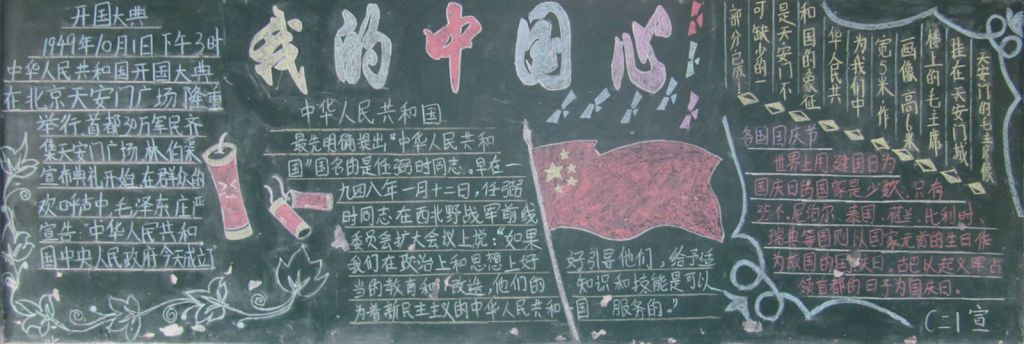 我的中国心
开国大典
1949年10月1日下午3时
中华人民共和国开国大典
在北京天安门广场隆重
举行首都30万军民齐
集天安门广场.林伯渠
宣布典礼开始.在群众的
欢呼声中,毛泽东庄严
宣告:中华人民共和
国中央人民政府今天成立
中华人民共和国
最先明确提出"中华人民共和
国"国名的是任弼时同志。早在一
九四八年一月十二日,任弼
时同志在西北野战军前线
委员会扩大会议上说:"如果
我们在政治上和思想上好
当的教育和 改造,他们的
为着新民主主义的中华人民共和国
好引导他们,给予适
知识和技能是可以
服务的。"
天安门的毛主席像
挂在天安门城
楼上的毛主席
画像高
宽 米作
为我们中
华人民共
和国的象征
是天安门不
可缺少的
部分已成
各国国庆节
世界上用建国日为
国庆日的国家是少数,只有
35个.尼泊尔、泰国、荷兰、比利时、
瑞典等国则以国家元首的生日作
为本国的国庆日.古巴以起义军占
领首都的日子为国庆日。
C二1宣